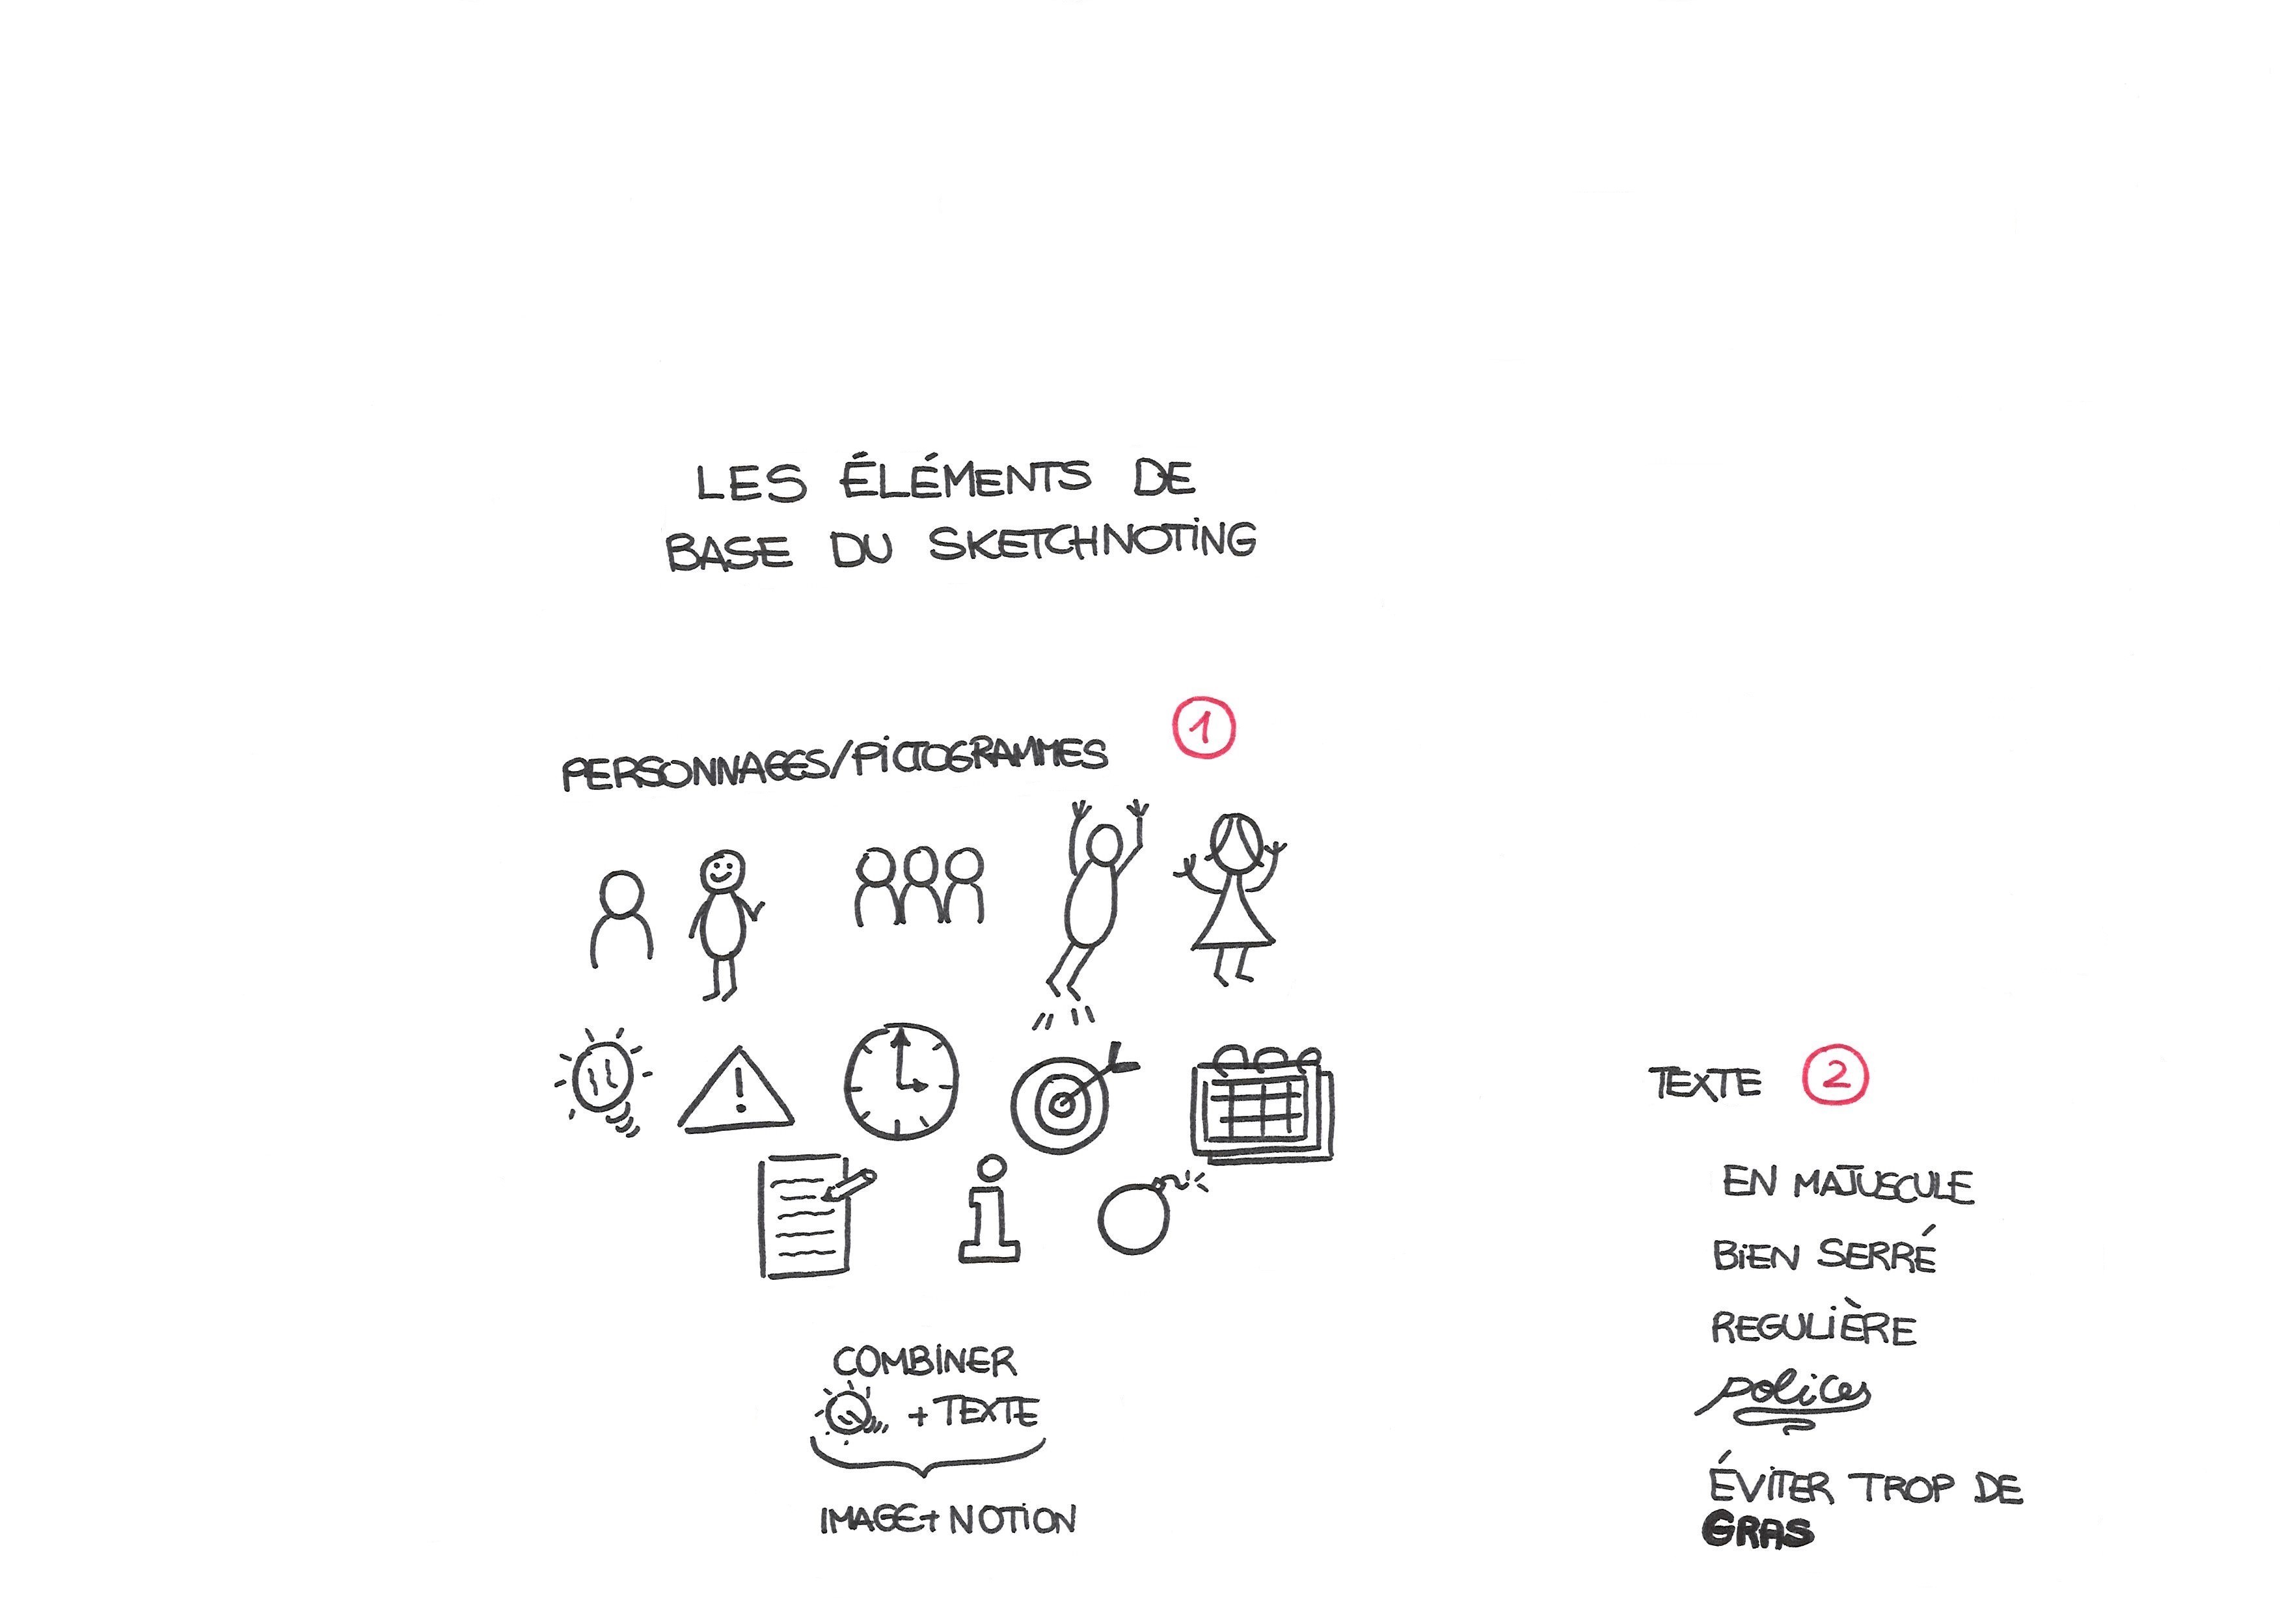 LES ÉLÉMENTS DE
BASE DU SKETCHNOTING
PERSONNAGES/PICTOGRAMMES 1
!
i
COMBINER
+ TEXTE
IMAGE + NOTION
TEXTE 2
EN MAJUSCULE
BIEN SERRÉ
REGULIÈRE
polices
ÉVITER TROP DE
GRAS